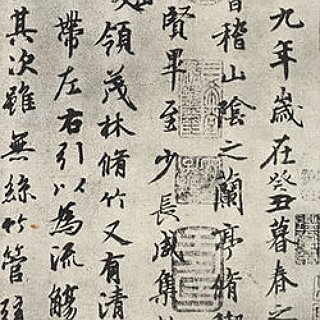 九年歲在癸丑暮春之
稽山陰之蘭亭脩禊
賢畢至少長咸集
領茂林脩竹又有清
帶左右引以為流觴
其次雖無絲竹管